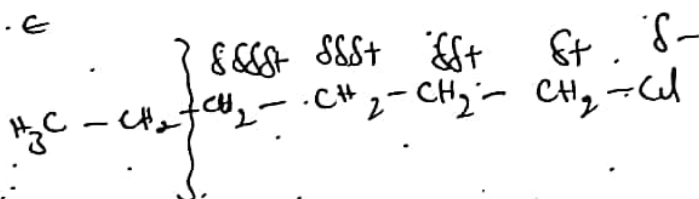 · E
δδδδ+ δδδ+ δδ+ δ+ δ-
H₃C - CH₂ - CH₂ - CH₂ - CH₂ - CH₂ - Cl